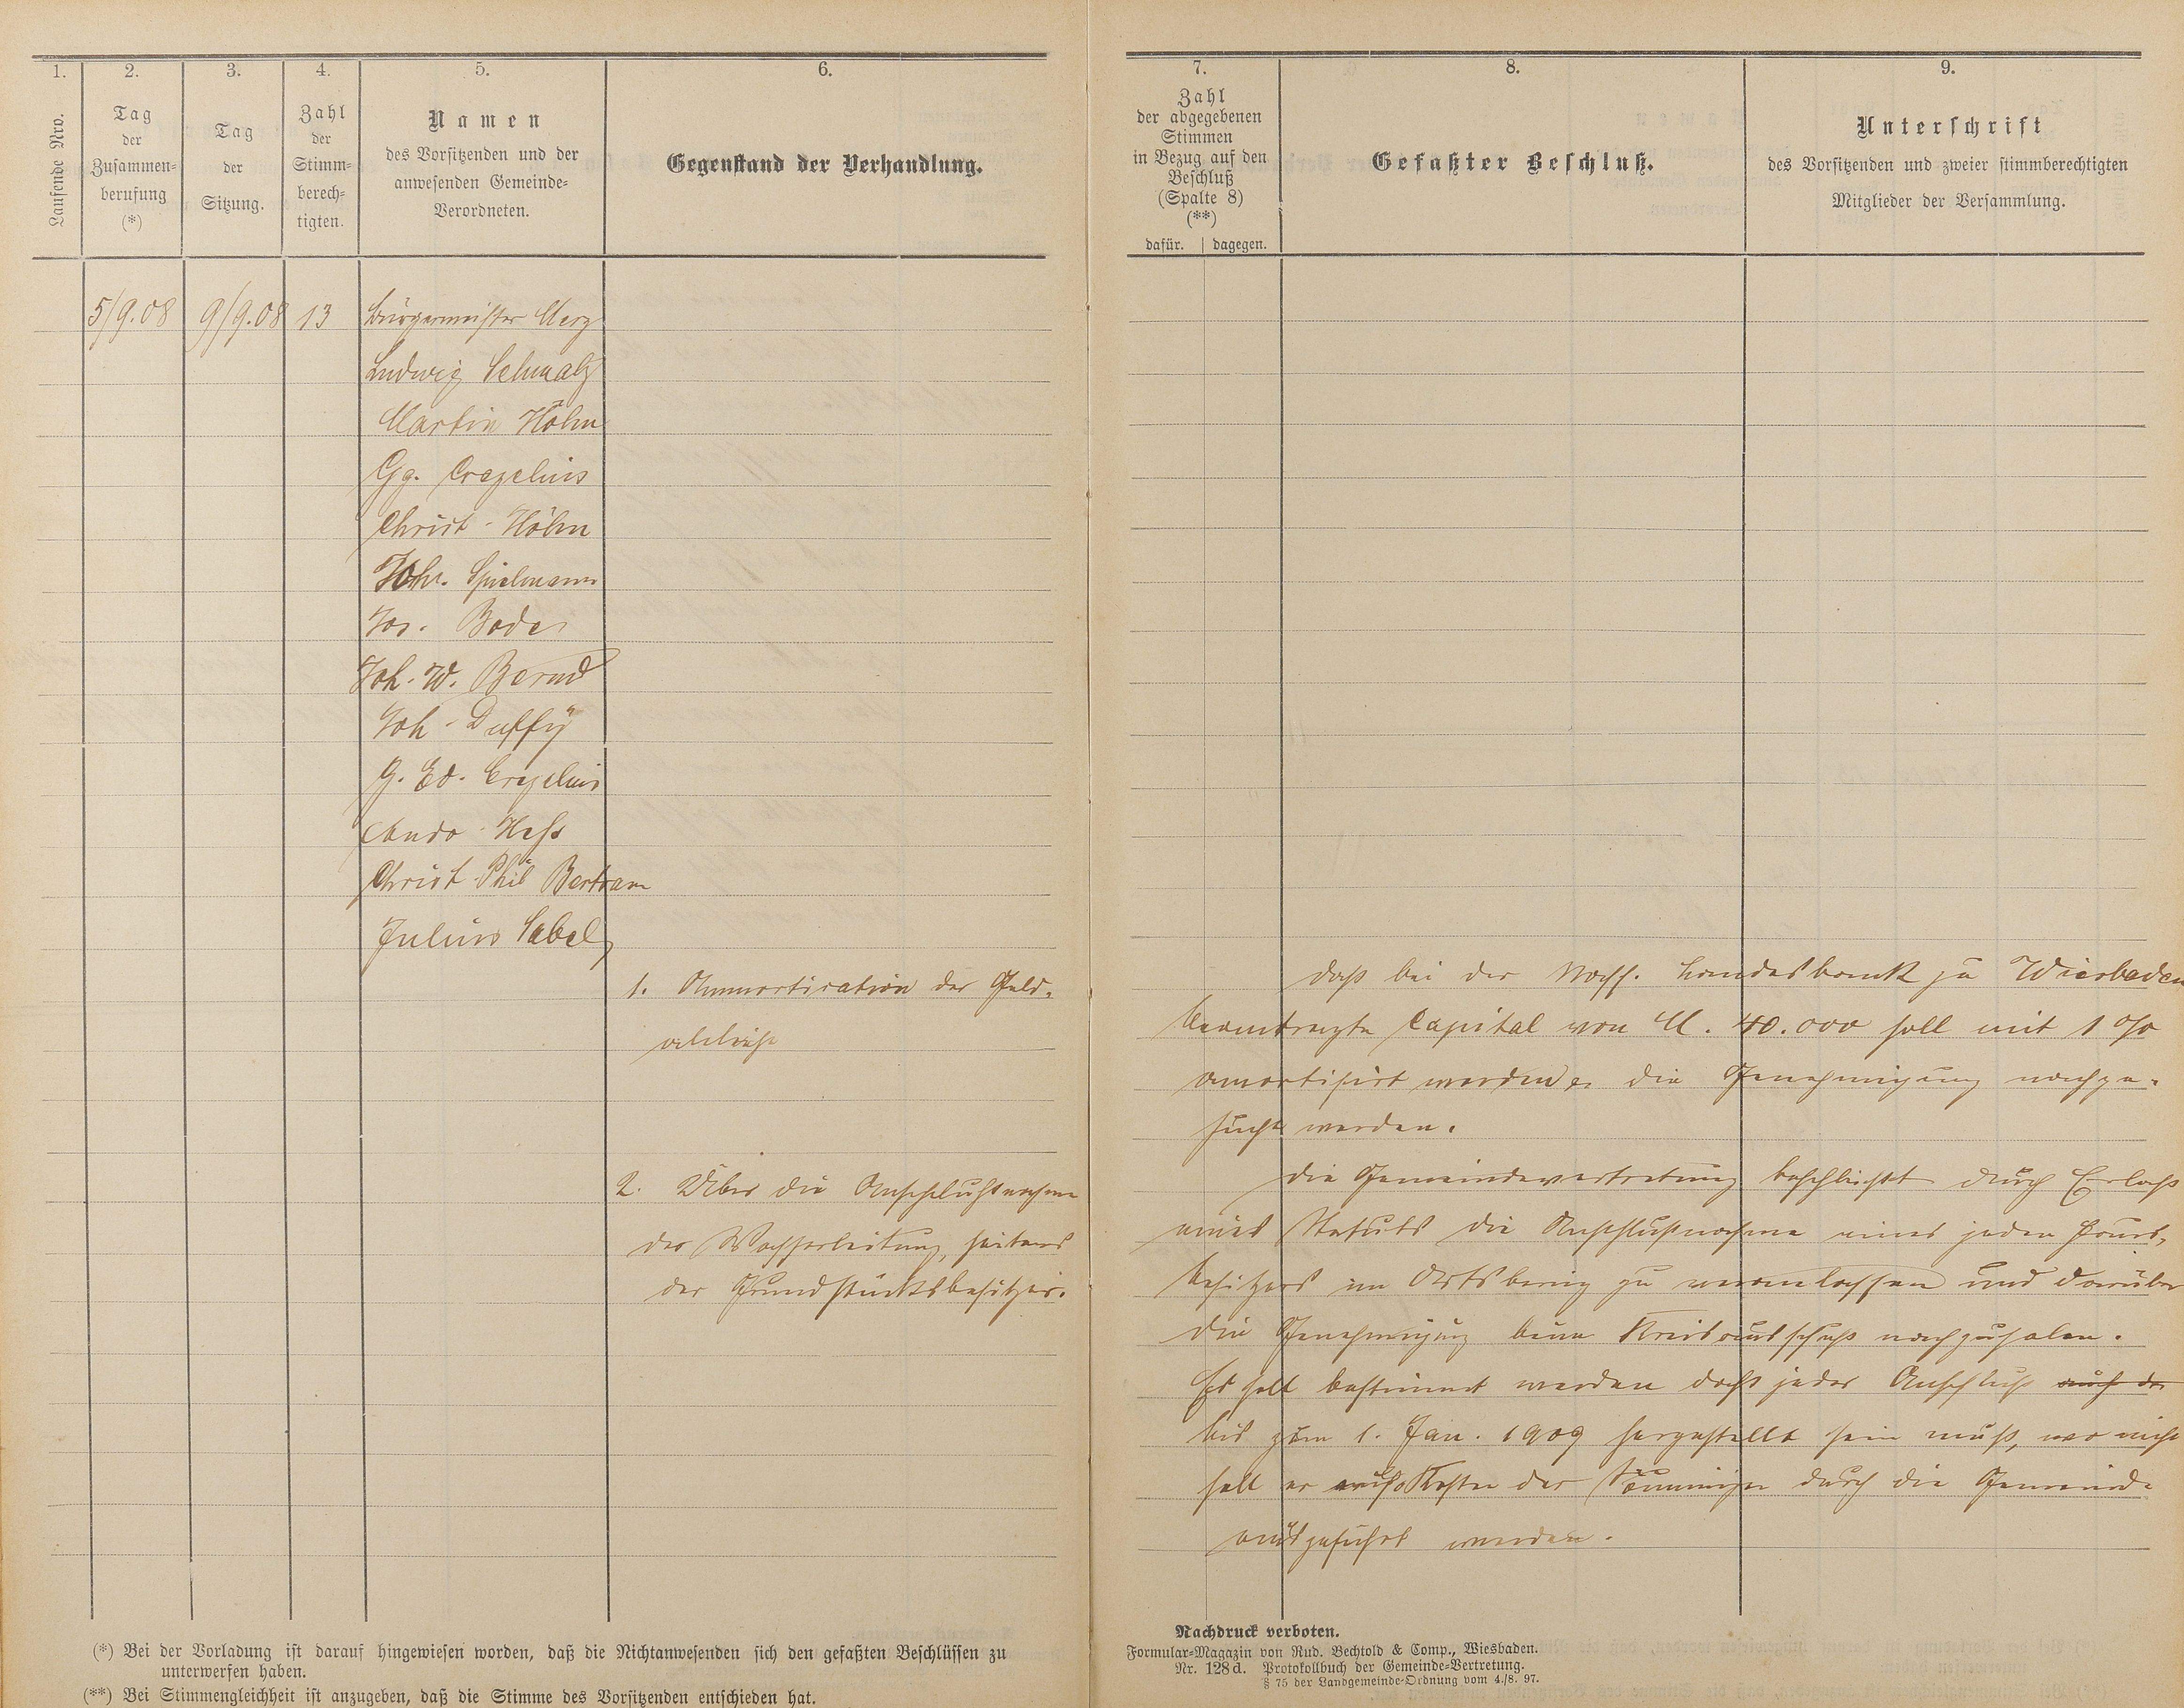 1. 2. 3. 4. 5. 6.
Laufende Nro.
Tag
der
Zusammen-
berufung
(*)
Tag
der
Sitzung.
Zahl
der
Stimm-
berech-
tigten.
Namen
des Vorsitzenden und der
anwesenden Gemeinde-
Verordneten.
Gegenstand der Verhandlung.
5/9.08 9/9.08 13 Bürgermeister Merz
Ludwig Schmalz
Martin Höhn
Gg. Crezelius
Christ. Höhn
Joh. Spielmann
Jos. Bode
Joh. W. Bernd
Joh. Duffÿ
G. Ed. Crezelius
Andr. Heß
Christ. Phil Bertram
Julius Sabel
1. Ammortisation der Geld-
2. Über die Anschlußnahme
der Wasserleitung, seitens
der Grundstücksbesitzer.
(*) Bei der Vorladung ist darauf hingewiesen worden, daß die Nichtanwesenden sich den gefaßten Beschlüssen zu
unterwerfen haben.
(**) Bei Stimmengleichheit ist anzugeben, daß die Stimme des Vorsitzenden entschieden hat.
7. 8. 9.
Zahl
der abgegebenen
Stimmen
in Bezug auf den
Beschluß
(Spalte 8)
(**)
dafür. dagegen.
Gefaßter Beschluß.
Unterschrift
des Vorsitzenden und zweier stimmberechtigten
Mitglieder der Versammlung.
Daß bei der Nass. Landesbank zu Wiesbaden
beantragte Capital von M. 40.000 soll mit 1 %
amortisirt werden die Genehmigung nachge-
sucht werden.
Die Gemeindevertretung beschließt durch Erlaß
eines Statuts die Anschlußnahme eines jeden Haus-
besitzers im Ortsbering zu veranlassen und darüber
die Genehmigung beim Kreisausschuß nachzuholen.
Es soll bestimmt werden daß jeder Anschluß auf der
bis zum 1. Jan. 1909 hergestellt sein muß, wo nicht
soll er auf Kosten der Säumigen durch die Gemeinde
ausgeführt werden.
Nachdruck verboten.
Formular-Magazin von Rud. Bechtold & Comp., Wiesbaden.
Nr. 128d. Protokollbuch der Gemeinde-Vertretung.
§ 75 der Landgemeinde-Ordnung vom 4./8. 97.